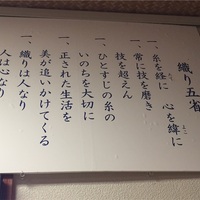 織り五省
一、糸を経に 心を緯に
よこ
一、常に技を磨き
技を超えん
一、ひとすじの糸の
いのちを大切に
一、正された生活を
美が追いかけてくる
一、織りは人なり
人は心なり